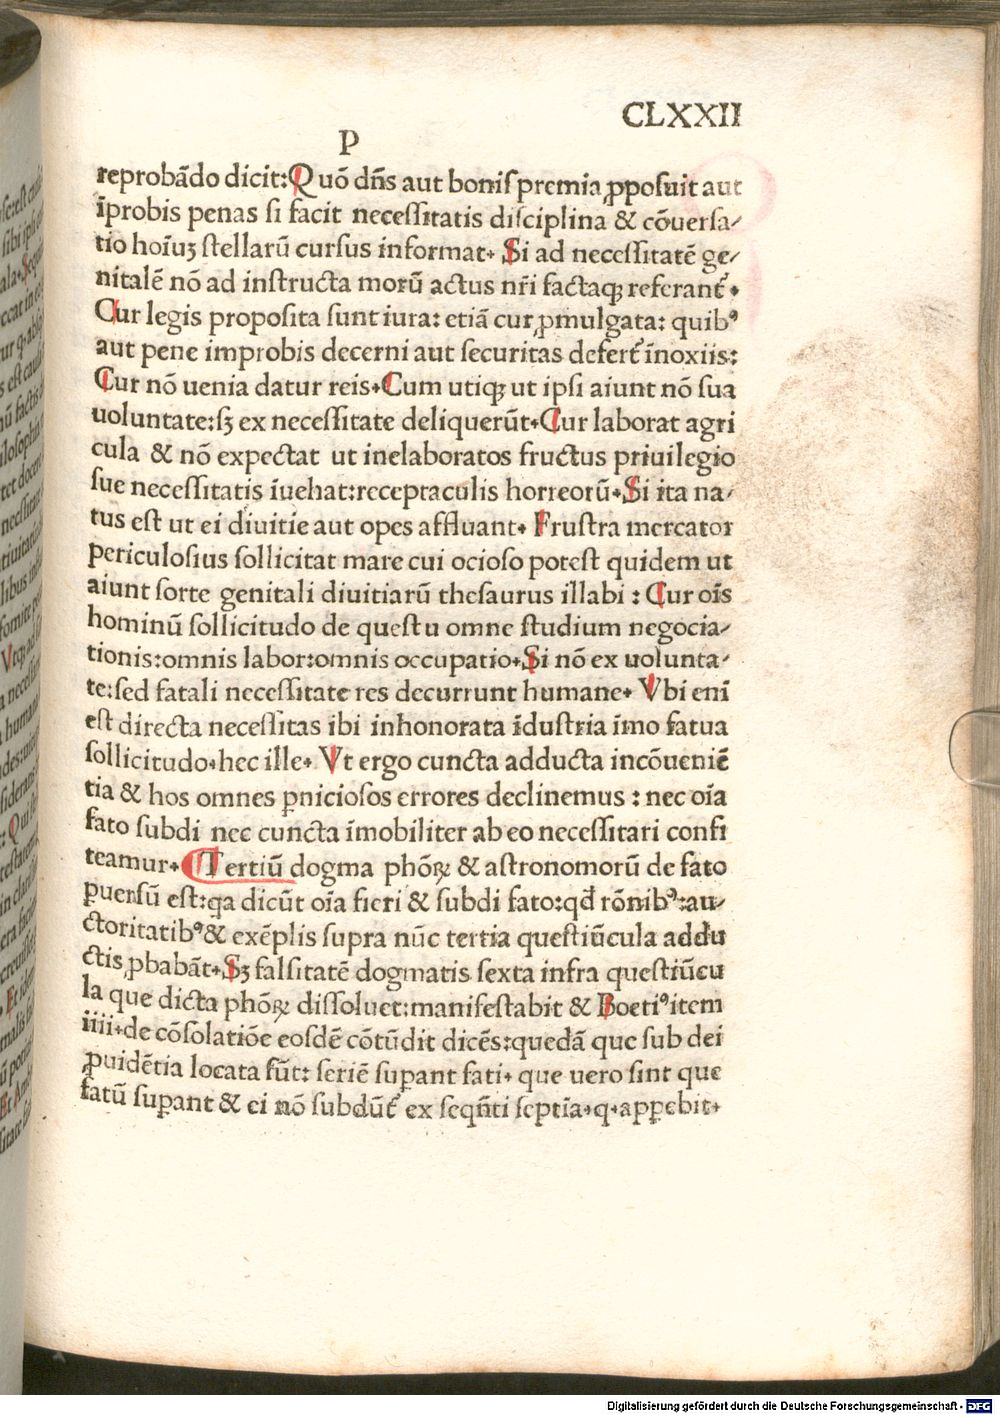 CLXXII
P
reprobādo dicit:Quō dn̄s aut boniſ premia ꝓpoſuit aut
īprobis penas ſi facit neceſſitatis diſciplina & cōuerſa⸗
tio hoīuꝫ ſtellarū curſus informat. Si ad neceſſitatē ge⸗
nitalē nō ad inſtructa morū actus nr̄i factaqꝫ referant᷑.
Cur legis propoſita ſunt iura: etiā cur ꝓmulgata: quibꝰ
aut pene improbis decerni aut ſecuritas defert᷑ īnoxiis:
Cur nō uenia datur reis.Cum utiqꝫ ut ipſi aiunt nō ſua
uoluntate:ſꝫ ex neceſſitate deliquerūt.Cur laborat agri
cula & nō expectat ut inelaboratos fructus priuilegio
ſue neceſſitatis īuehat:receptaculis horreorū.Si ita na⸗
tus eſt ut ei diuitie aut opes affluant. Fruſtra mercator
periculoſius ſollicitat mare cui ocioſo poteſt quidem ut
aiunt ſorte genitali diuitiarū theſaurus illabi : Cur oīs
hominū ſollicitudo de queſtu omne ſtudium negocia⸗
tionis:omnis labor:omnis occupatio.Si nō ex uolunta⸗
te:ſed fatali neceſſitate res decurrunt humane. Vbi enī
eſt directa neceſſitas ibi inhonorata īduſtria īmo fatua
ſollicitudo.hec ille. Vt ergo cuncta adducta incōueniē
tia & hos omnes ꝑnicioſos errores declinemus : nec oīa
fato ſubdi nec cuncta īmobiliter ab eo neceſſitari confi
teamur. Tertiū dogma phōꝝ & aſtronomorū de fato
ꝑuerſū eſt:qa dicūt oīa fieri & ſubdi fato:qd̄ rōnibꝰ:au⸗
ctoritatibꝰ& exēplis ſupra nūc tertia queſtiūcula addu
ctis ꝓbabāt.Sꝫ falſitatē dogmatis ſexta infra queſtiūcu
la que dicta phōꝝ diſſoluet:manifeſtabit & Boetiꝰitem
iiii.de cōſolatiōe eoſdē cōtūdit dicēs:quedā que ſub dei
ꝓuidētia locata ſūt: ſeriē ſuꝑant fati. que uero ſint que
fatū ſuꝑant & ei nō ſubdūt᷑ ex ſeqn̄ti ſeptīa.q.apꝑebit.
Digitalisierung gefördert durch die Deutsche Forschungsgemeinschaft - DFG